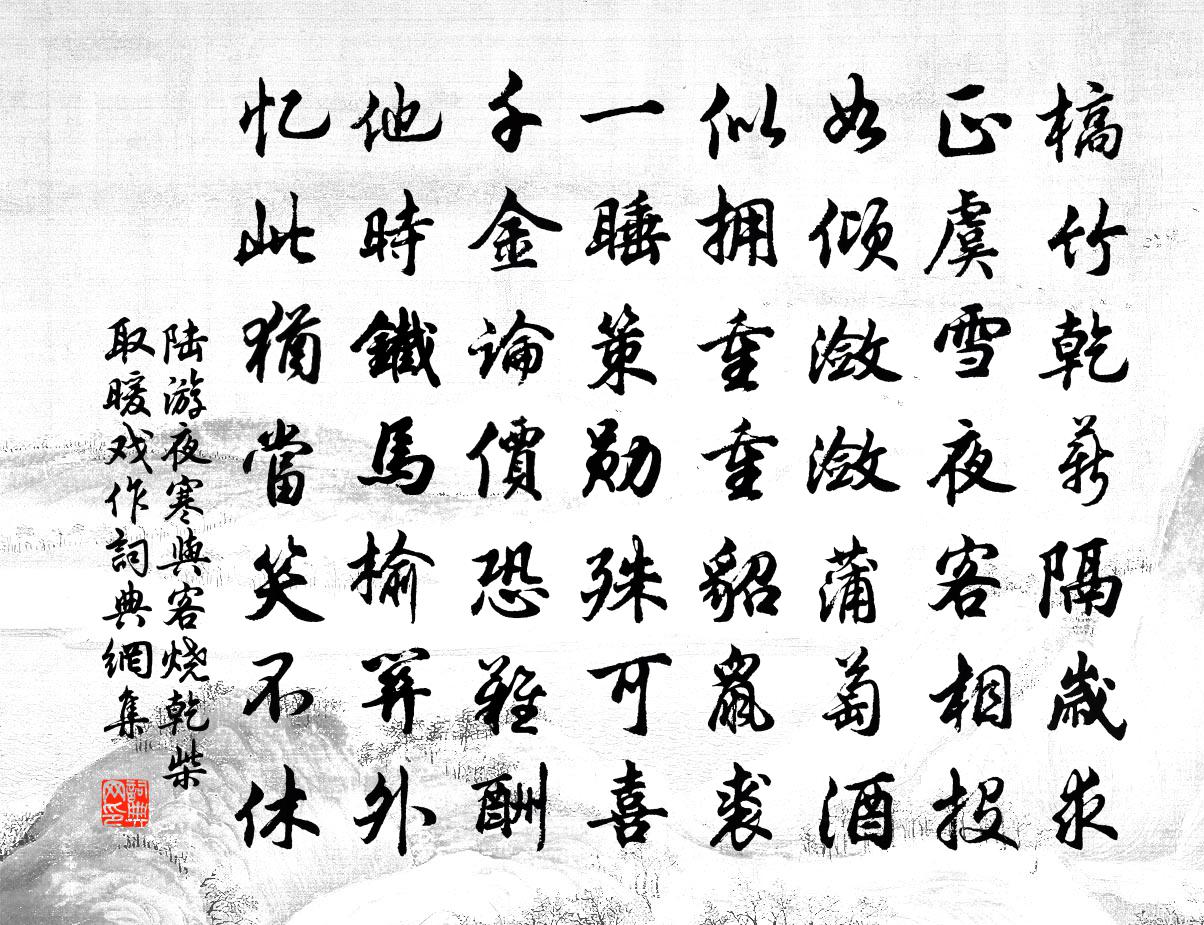 槁竹乾薪隔歲求
正虞雪夜客相投
如傾瀲瀲蒲萄酒
似擁重重貂鼠裘
一睡策勋殊可喜
千金論價恐難酬
他時鐵馬榆關外
忆此猶當笑不休
陆游夜寒與客燒乾柴
取暖戏作詞典網集
詞典网印